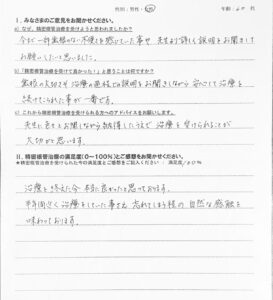 性別：男性・女性 年齢：60代
I．みなさまのご意見をお聞かせください。
a) なぜ、精密根管治療を受けようと思われましたか？
今まで一部歯根のない不便さを感じていた事や 先生より詳しく説明をお聞きして
お願いしたいと思いました。
b) 「精密根管治療を受けて良かった！」と思うことは何ですか？
歯根の大切さや治療の過程の説明をお聞きしながら安心して治療を
続けられた事が一番です。
c) これから精密根管治療を受けられる方へのアドバイスをお願いします。
先生に色々とお聞しながら納得した上で治療を受けられることが
大切かと思います。
II．精密根管治療の満足度(0〜100%)とご感想をお聞かせください。
●精密根管治療を受けられた今の満足度とご感想をご記入ください：満足度 100%
治療を終えた今 本当に良かったと思っております。
半年間近く治療をしていた事さえ 忘れてしまう程の自然な感触を
味わっております。